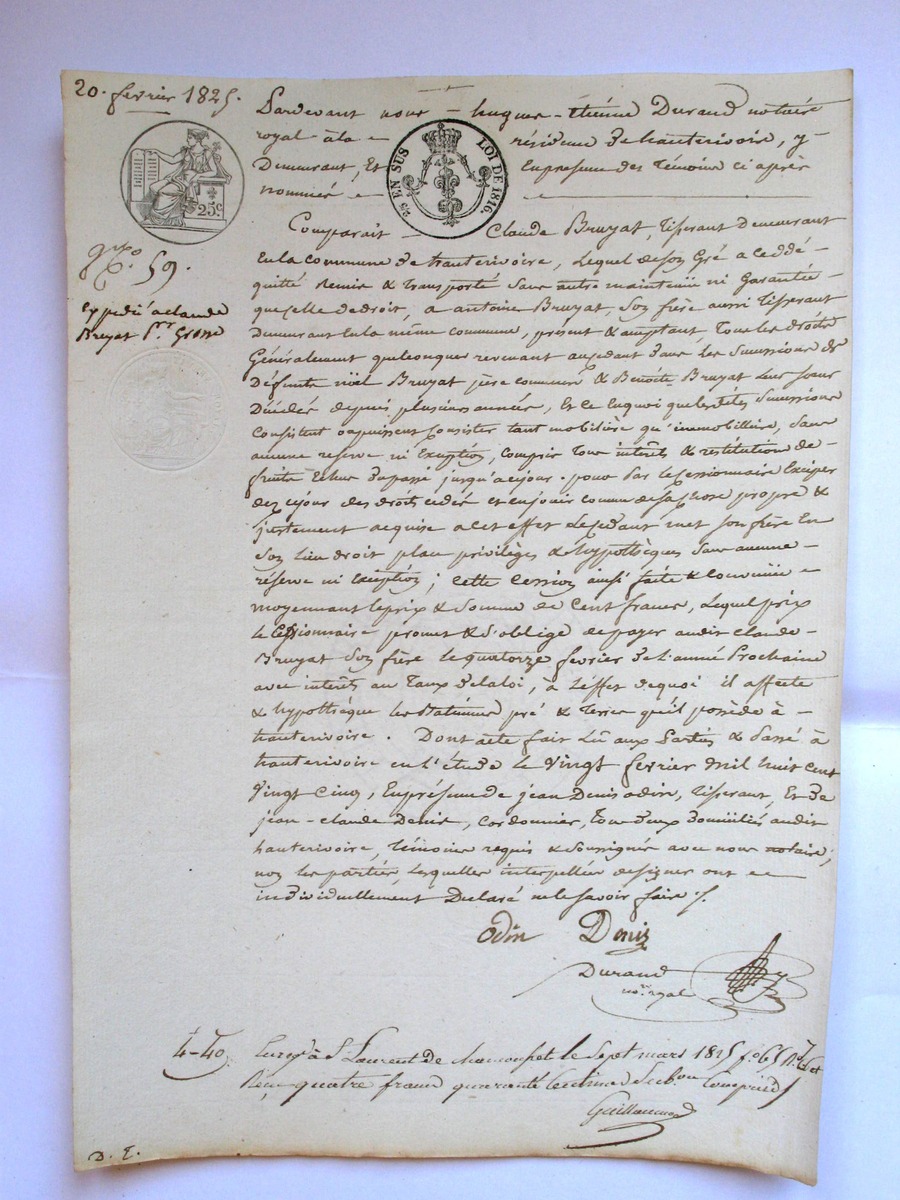 20. fevrier 1825.
Pardevant nous hugues-étiéne Durand notaire
royal à la résidence de hauterivoire, y
Demeurant, Et En presence des Témoins ci après
nommés
25 EN SUS LOI DE 1816
25c
Comparait Claude Bruyat, Tisserant Demeurant
En la commune de hauterivoire, Lequel de son Gré a ceddé
No. 59.
quitté Remis & transporté sans autre maintenüe ni Garantie
Expedié a claude
que celle de droit, a antoine Bruyat, son frère aussi Tisserant
Bruyat Pr. Grosse
Demeurant En la même commune, présent & acceptant, Tous les droits
Généralement quelconques revenant au cedant dans Les Successions de
Défunts nöel Bruyat père commun & Benoîte Bruyat Leur soeur
Décédés depuis plusieurs années, Et ce En quoi que les dites Successions
Consistent ou puissent Consister tant mobilière qu'immobilière, Sans
aucune reserve ni Exception, compris Tous intérêts & restitution de
fruits Echus du passé jusqu'a ce jour. pour Par le Cessionnaire
dez ce jour des droits cedés et en jouir comme de sa chose propre &
justement acquise a cet effet Le cedant met son frère En
son Lieu droit place privilèges & hypothèques Sans aucune
réserve ni Exception; Cette Cession ainsi faite & convenüe
moyennant le prix & Somme de Cent francs, Lequel prix
le Cessionnaire promet & s'oblige de payer audit Claude
Bruyat son frère le quatorze fevrier de l'année Prochaine
avec intérêts au Taux de la loi, à L'éffet de quoi il affecte
& hypothèque les Batimens pré & Terres qu'il possède à
hauterivoire. Dont acte fait Lû aux Parties & Passé à
hauterivoire en l'étude le vingt fevrier mil huit cent
vingt cinq, En présence de jean Denis odin, Tisserant, Et de
jean-claude Denis, Cordonnier, Tous deux Domiciliés audit
hauterivoire, Témoins requis & Soussignés avec nous notaire;
non les parties, Lesquelles interpellées de signer ont
individuellement Déclaré ne le savoir faire ·/.
Odin Denis
Durand
nore. royal
4-40 Enregé. à St. Laurent de Chamousset le Sept mars 1825 fo. 65
Reçu quatre francs quarante Centimes Subon. Compris
Guillaumod
D. E.